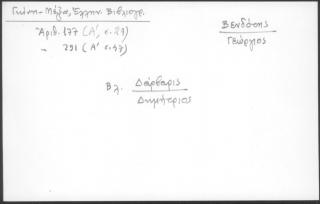 Γκίνη-Μέξα, Ἑλλην. Βιβλιογρ.
Ἀριθ. 177 (Α', σ. 27)
" 291 (Α', σ. 47)
Βενδότης
Γεώργιος
Βλ. Δάρβαρις
Δημήτριος